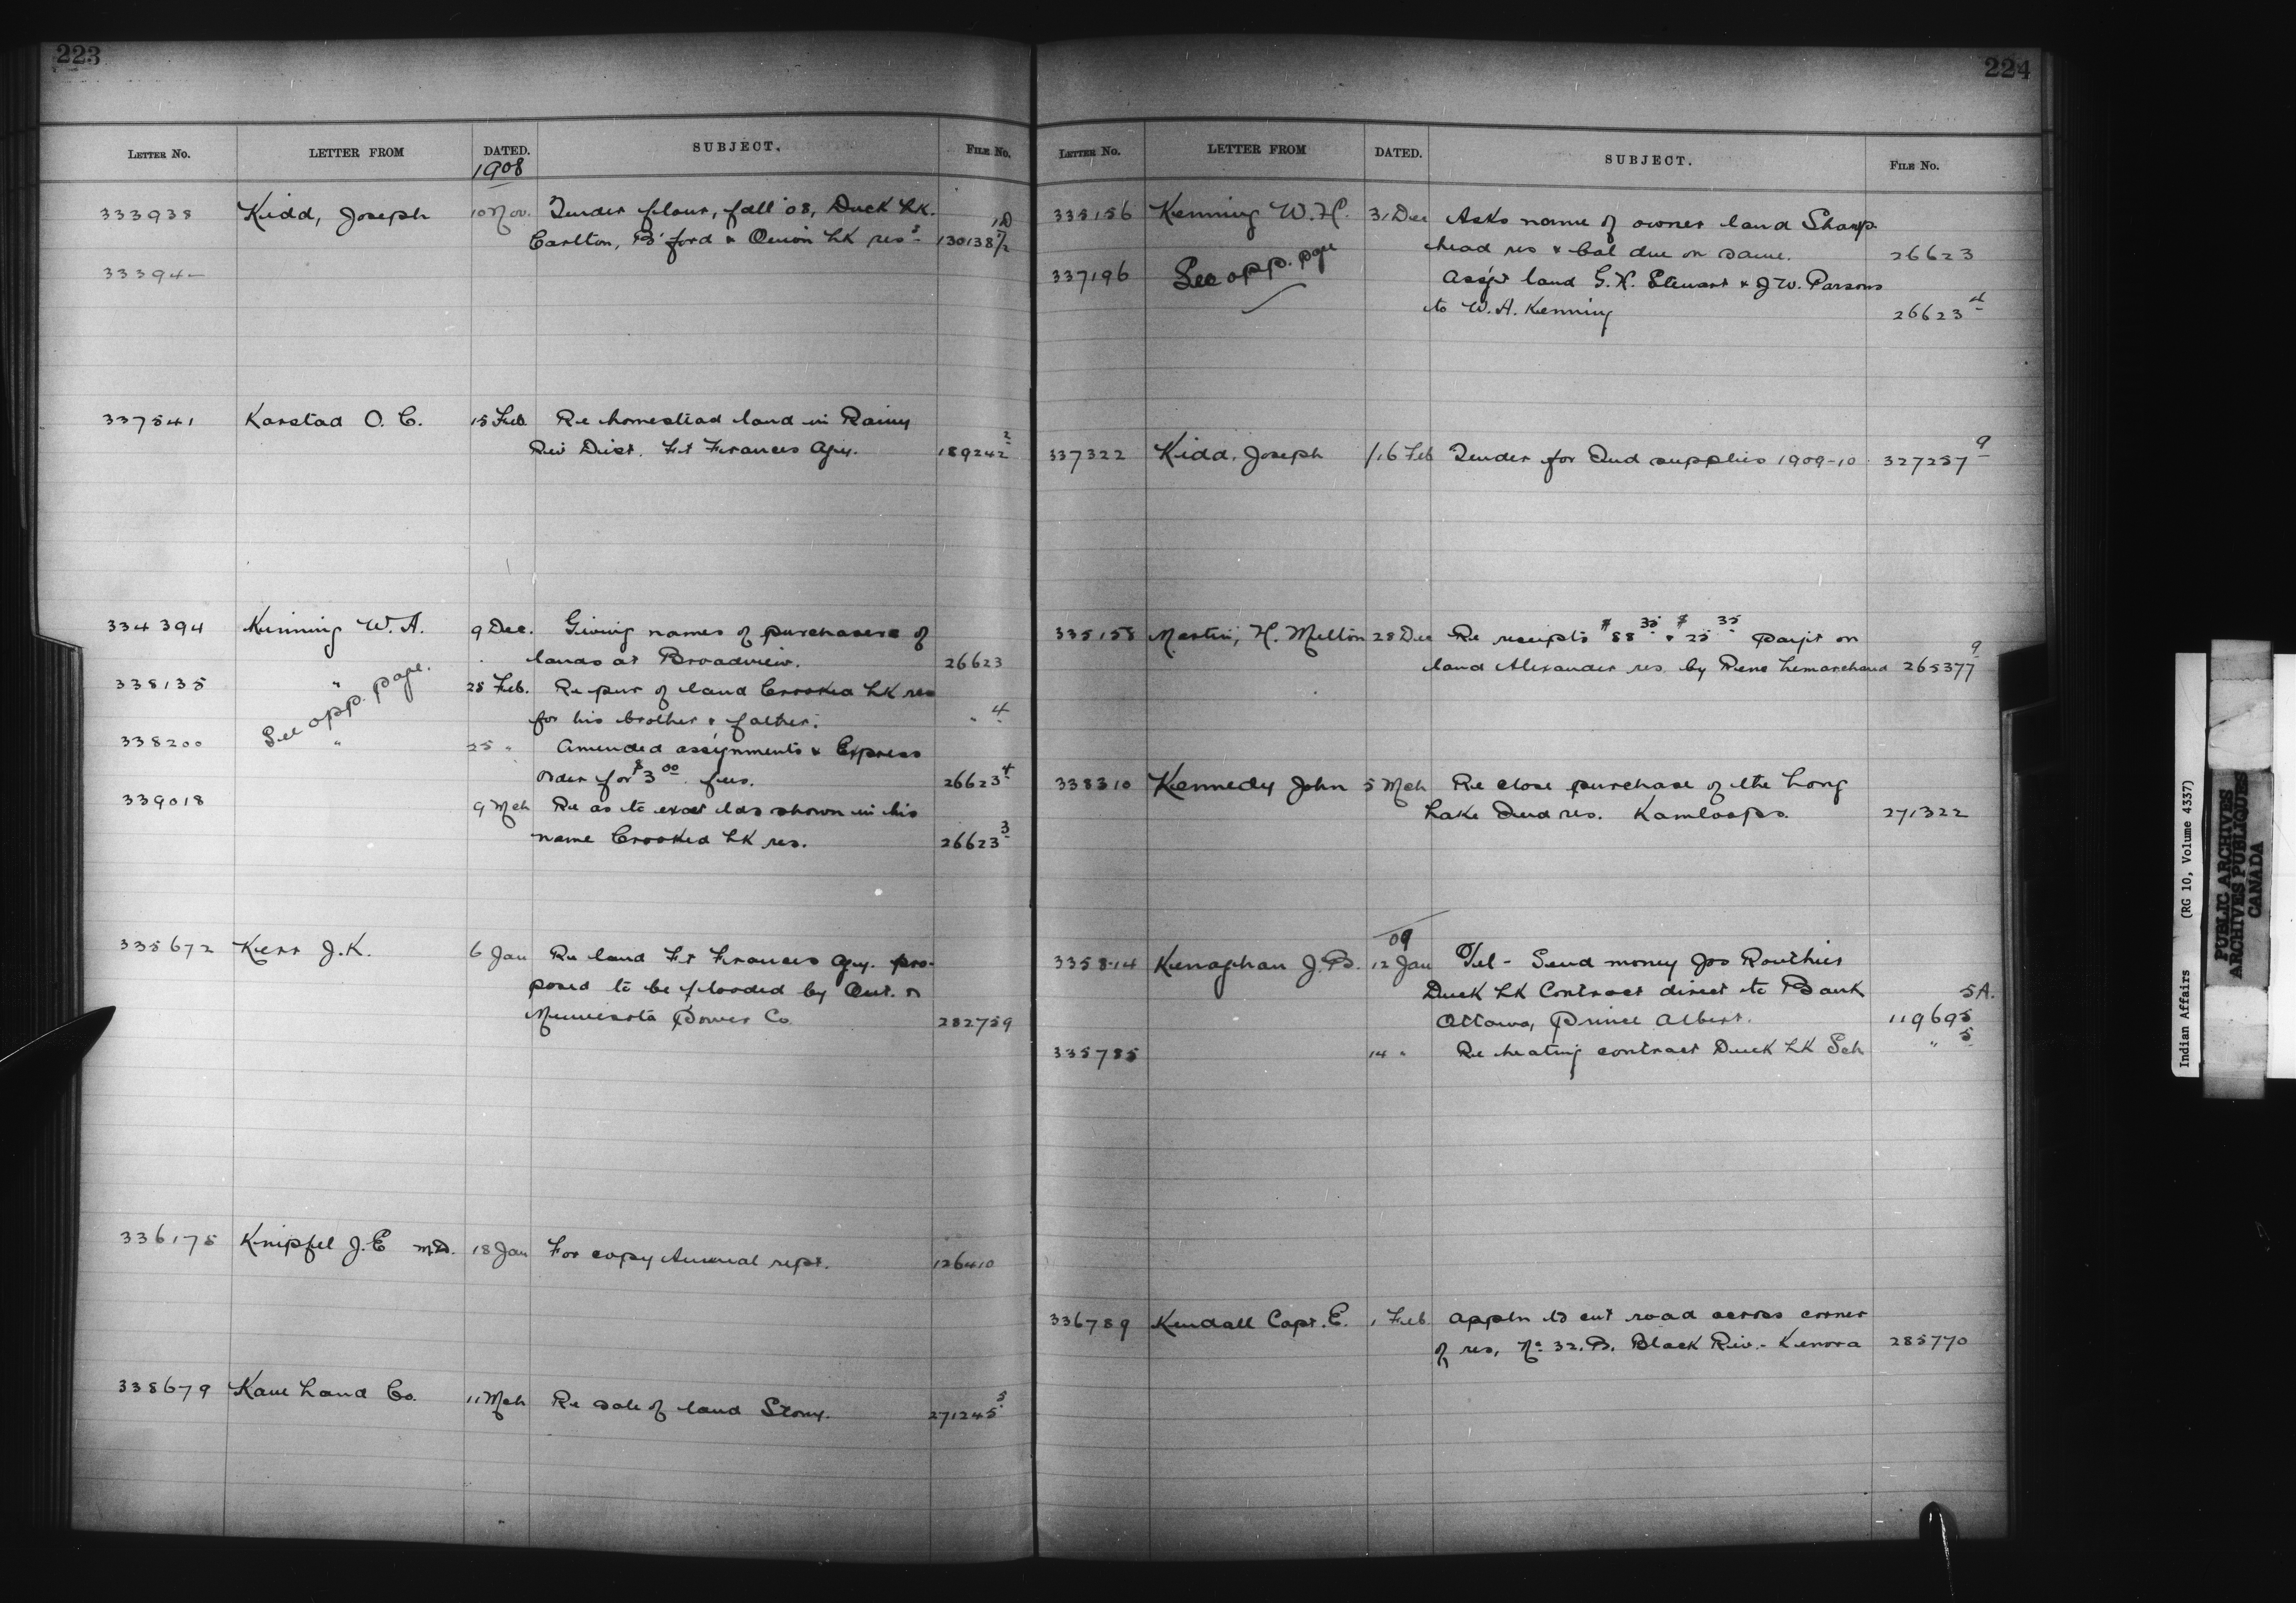 223
LETTER NO. LETTER FROM DATED. SUBJECT. FILE NO.
1908
333938 Kidd, Joseph 10 Nov. Tender flour, fall '08, Duck Lk. 1D
Carlton, B'ford & Onion Lk res
33394-
337541 Karstad O. C. 15 Feb Re homestead land in Rainy
Riv Dist. Ft Frances Agy. 189242 2
334394 Kenning W. A. 9 Dec. Giving names of purchasers of
lands at Broadview. 26623
338135 " 25 Feb. Re pur of land Crooked Lk res
for his brother & father. " 4
See opp. page.
338200 " 25 " Amended assignments & Express
order for $3 00 fees. 26623 4
339018 9 Mch Re as to exact lds shown in his
name Crooked Lk res. 26623 3
335672 Kerr J. K. 6 Jan Re land Ft Frances Agy. pro-
posed to be flooded by Ont. &
Minnesota Power Co. 282759
336175 Knipfel J. E M.D. 18 Jan For copy Annual rept. 126410
338679 Land Co. 11 Mch Re sale of land Stony. 271245 5
224
LETTER NO. LETTER FROM DATED. SUBJECT. FILE NO.
335156 Kenning W. H. 31 Dec Asks name of owner land Sharp
head res & bal due on same. 26623
337196 See opp. page Assgt land G. H. Stewart & J. W. Parsons
to W. A. Kenning 26623 4
337322 Kidd, Joseph 16 Feb Tender for Ind supplies 1909-10 327257 9
335158 Martin, H. Milton 28 Dec Re receipts $88 35 & $25 35 paym't on
land Alexander res. by Rene Lemarchand 265377 9
338310 Kennedy John 5 Mch Re close purchase of the Long
Lake Ind res. Kamloops. 271322
09
335814 Kernaghan J. B. 12 Jan Tel - Send money Jos Routhier
Duck Lk Contract direct to Bank 5A.
Ottawa, Prince Albert. 119695
335785 14 " Re heating contract Duck Lk Sch " 5
336789 Kendall Capt. E. 1 Feb appln to cut road across corner
of res, No 32. B. Black Riv. - Kenora 285770
Indian Affairs (RG 10, Volume 4337)
PUBLIC ARCHIVES
ARCHIVES PUBLIQUES
CANADA